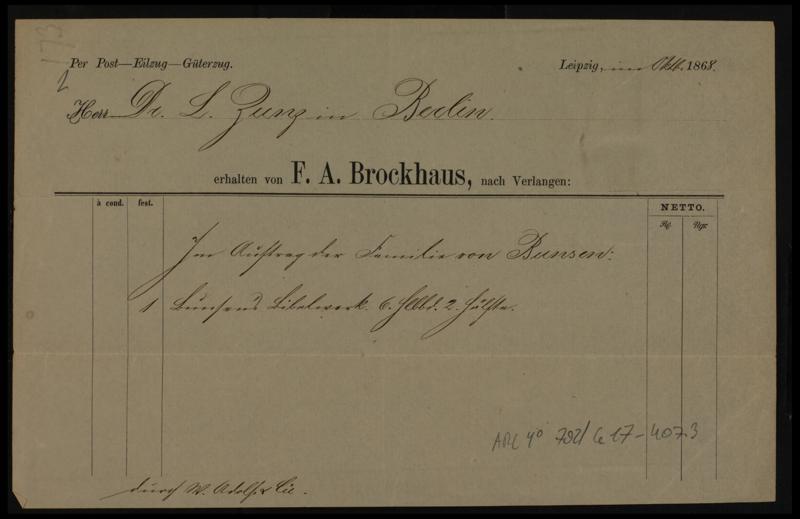 173
2
Per Post—Eilzug—Güterzug.
Leipzig, im Okt. 1868.
Herr Dr. L. Zunz in Berlin.
erhalten von F. A. Brockhaus, nach Verlangen:
à cond. fest. NETTO.
Im Auftrag der Familie von Bunsen:
1 Bunsens Bibelwerk. 6. Hlbbd. 2. Hälfte.
ARC 4° 792/ 17-407.3
durch W. Adolf & Cie.